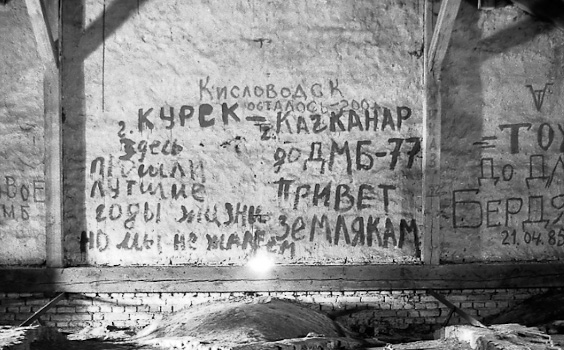 Кисловодск
осталось-200
г. Курск = г. Качканар
Здесь
прошли
лучшие
годы жизни
но мы не жалеем
до ДМБ-77
Привет
Землякам
ВОЕ
МБ
= ТО
До Д
Бердя
21.04.85